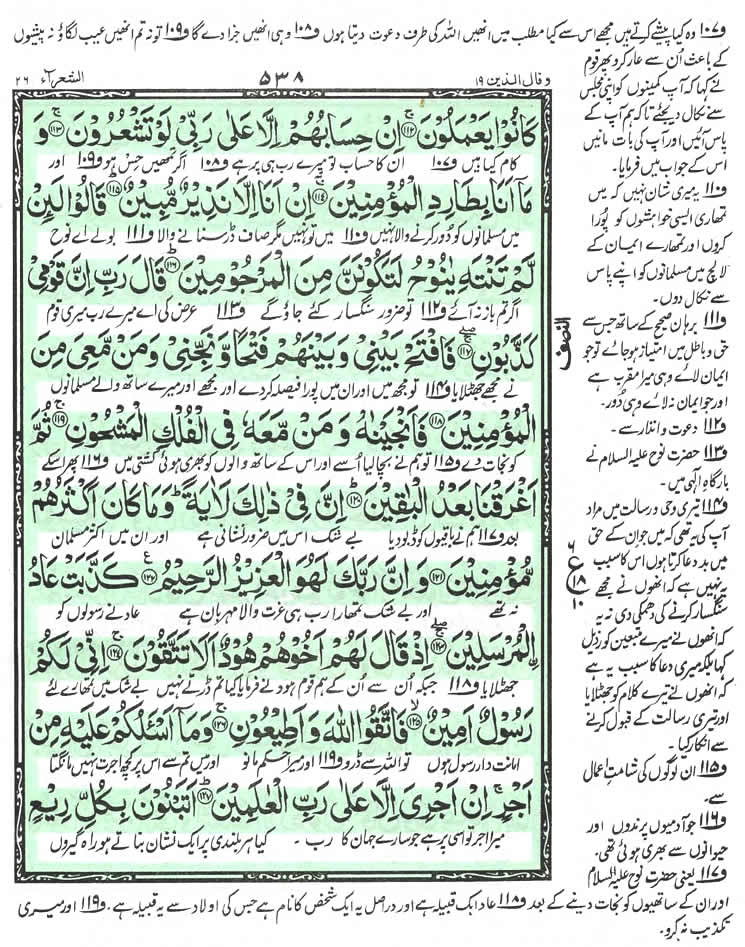 و۱۰۷ وہ کیا پیشے کرتے ہیں مجھے اس سے کیا مطلب میں انھیں اللہ کی طرف دعوت دیتا ہوں و۱۰۸ وہی انھیں جزا دے گا و۱۰۹ تو نہ تم انھیں عیب لگاؤ نہ پیشوں
کے باعث اُن سے عار کرو پھر قوم
نے کہا کہ آپ کمینوں کو اپنی مجلس
سے نکال دیجئے تاکہ ہم آپ کے
پاس آئیں اور آپ کی بات مانیں
اس کے جواب میں فرمایا۔
و۱۱۰ یہ میری شان نہیں کہ میں
تمھاری ایسی خواہشوں کو پُورا
کروں اور تمھارے ایمان کے
لالچ میں مسلمانوں کو اپنے پاس
سے نکال دوں۔
و۱۱۱ برہان صحیح کے ساتھ جس سے
حق و باطل میں امتیاز ہو جائے تو جو
ایمان لائے وہی میرا مقرب ہے
اور جو ایمان نہ لائے وہی دُور۔
و۱۱۲ دعوت و انذار سے۔
و۱۱۳ حضرت نوح علیہ السلام نے
بارگاہِ الٰہی میں۔
و۱۱۴ تیری وحی و رسالت میں مراد
آپ کی یہ تھی کہ میں جو ان کے حق
میں بددعا کرتا ہوں اس کا سبب
یہ نہیں ہے کہ انھوں نے مجھے
سنگسار کرنے کی دھمکی دی نہ یہ
کہ انھوں نے میرے متبعین کو رذیل
کہا بلکہ میری دعا کا سبب یہ ہے
کہ انھوں نے تیرے کلام کو جھٹلایا
اور تیری رسالت کے قبول کرنے
سے انکار کیا۔
و۱۱۵ ان لوگوں کی شامتِ اعمال
سے۔
و۱۱۶ جو آدمیوں پرندوں اور
حیوانوں سے بھری ہوئی تھی۔
و۱۱۷ یعنی حضرت نوح علیہ السلام
وقال الذین ۱۹
۵۳۸
الشعرآء ۲۶
كَانُوْا يَعْمَلُوْنَ ﴿۱۱۲﴾ اِنْ حِسَابُهُمْ اِلَّا عَلٰى رَبِّيْ لَوْ تَشْعُرُوْنَ ﴿۱۱۳﴾ وَ
کام کیا ہیں و۱۰۷ ان کا حساب تو میرے رب ہی پر ہے و۱۰۸ اگر تمھیں حِس ہو و۱۰۹ اور
مَاۤ اَنَا بِطَارِدِ الْمُؤْمِنِيْنَ ﴿۱۱۴﴾ اِنْ اَنَا اِلَّا نَذِيْرٌ مُّبِيْنٌ ﴿۱۱۵﴾ قَالُوْا لَىِٕنْ
میں مسلمانوں کو دُور کرنے والا نہیں و۱۱۰ میں تو نہیں مگر صاف ڈر سنانے والا و۱۱۱ بولے اے نوح
لَّمْ تَنْتَهِ يٰنُوْحُ لَتَكُوْنَنَّ مِنَ الْمَرْجُوْمِيْنَ ﴿۱۱۶﴾ قَالَ رَبِّ اِنَّ قَوْمِيْ
اگر تم باز نہ آئے و۱۱۲ تو ضرور سنگسار کئے جاؤ گے و۱۱۳ عرض کی اے میرے رب میری قوم
كَذَّبُوْنِ ﴿۱۱۷﴾ فَافْتَحْ بَيْنِيْ وَبَيْنَهُمْ فَتْحًا وَّنَجِّنِيْ وَمَنْ مَّعِيَ مِنَ
نے مجھے جھٹلایا و۱۱۴ تو مجھ میں اور ان میں پورا فیصلہ کردے اور مجھے اور میرے ساتھ والے مسلمانوں
الْمُؤْمِنِيْنَ ﴿۱۱۸﴾ فَاَنْجَيْنٰهُ وَ مَنْ مَّعَهٗ فِي الْفُلْكِ الْمَشْحُوْنِ ﴿۱۱۹﴾ ثُمَّ
کو نجات دے و۱۱۵ تو ہم نے بچالیا اُسے اور اس کے ساتھ والوں کو بھری ہوئی کشتی میں و۱۱۶ پھر اسکے
اَغْرَقْنَا بَعْدُ الْبٰقِيْنَ ﴿۱۲۰﴾ اِنَّ فِيْ ذٰلِكَ لَاٰيَةً ؕ وَمَا كَانَ اَكْثَرُهُمْ
بعد و۱۱۷ ہم نے باقیوں کو ڈبو دیا بے شک اس میں ضرور نشانی ہے اور ان میں اکثر مسلمان
مُّؤْمِنِيْنَ ﴿۱۲۱﴾ وَاِنَّ رَبَّكَ لَهُوَ الْعَزِيْزُ الرَّحِيْمُ ﴿۱۲۲﴾ كَذَّبَتْ عَادُ
نہ تھے اور بے شک تمھارا رب ہی عزت والا مہربان ہے عاد نے رسولوں کو
الْمُرْسَلِيْنَ ﴿۱۲۳﴾ اِذْ قَالَ لَهُمْ اَخُوْهُمْ هُوْدٌ اَلَا تَتَّقُوْنَ ﴿۱۲۴﴾ اِنِّيْ لَكُمْ
جھٹلایا و۱۱۸ جبکہ اُن سے اُن کے ہم قوم ہود نے فرمایا کیا تم ڈرتے نہیں بے شک میں تمھارے لئے
رَسُوْلٌ اَمِيْنٌ ﴿۱۲۵﴾ فَاتَّقُوا اللّٰهَ وَاَطِيْعُوْنِ ﴿۱۲۶﴾ وَمَاۤ اَسْـَٔلُكُمْ عَلَيْهِ مِنْ
امانت دار رسول ہوں تو اللہ سے ڈرو و۱۱۹ اور میرا حکم مانو اور میں تم سے اس پر کچھ اجرت نہیں مانگتا
اَجْرٍ ۚ اِنْ اَجْرِيَ اِلَّا عَلٰى رَبِّ الْعٰلَمِيْنَ ﴿۱۲۷﴾ اَتَبْنُوْنَ بِكُلِّ رِيْعٍ
میرا اجر تو اسی پر ہے جو سارے جہان کا رب ۔ کیا ہر بلندی پر ایک نشان بناتے ہو راہ گیروں
النصف
۶
ع
۱۸
۱۰
اور ان کے ساتھیوں کو نجات دینے کے بعد و۱۱۸ عاد ایک قبیلہ ہے اور دراصل یہ ایک شخص کا نام ہے جس کی اولاد سے یہ قبیلہ ہے۔ و۱۱۹ اور میری
تکذیب نہ کرو۔